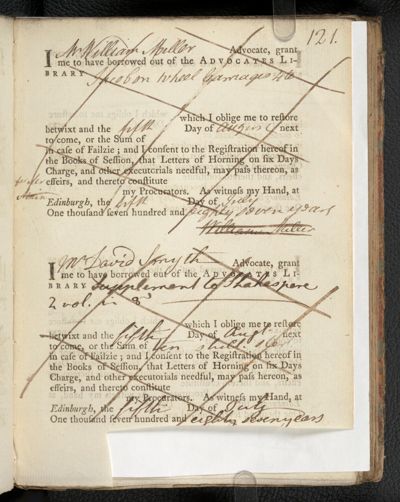 121.
I Mr William Miller Advocate, grant
me to have borrowed out of the ADVOCATES LI-
BRARY Jacob on Wheel Carriages 4to
which I oblige me to reſtore
betwixt and the fifth Day of August next
to come, or the Sum of
in caſe of Failzie ; and I conſent to the Regiſtration hereof in
the Books of Seſſion, that Letters of Horning on ſix Days
Charge, and other executorials needful, may paſs thereon, as
effeirs, and thereto conſtitute
my Procurators. As witneſs my Hand, at
Edinburgh, the fifth Day of July
One thouſand ſeven hundred and eighty seven years
William Miller
I Mr David Forsyth Advocate, grant
me to have borrowed out of the ADVOCATES LI-
BRARY Supplement to Shakespere
2 vol. in 8
which I oblige me to reſtore
betwixt and the fifth Day of Augt next
to come, or the Sum of ten shill ster
in caſe of Failzie ; and I conſent to the Regiſtration hereof in
the Books of Seſſion, that Letters of Horning on ſix Days
Charge, and other executorials needful, may paſs thereon, as
effeirs, and thereto conſtitute
my Procurators. As witneſs my Hand, at
Edinburgh, the fifth Day of July
One thouſand ſeven hundred and eighty seven years